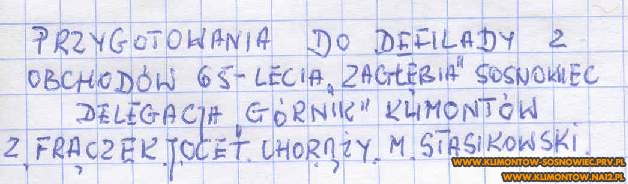 PRZYGOTOWANIA DO DEFILADY Z
OBCHODÓW 65-LECIA „ZAGŁĘBIA" SOSNOWIEC
DELEGACJA „GÓRNIK" KLIMONTÓW
Z. FRĄCZEK, JOCET, CHORĄŻY, M. STASIKOWSKI.
WWW.KLIMONTOW-SOSNOWIEC.PRV.PL
WWW.KLIMONTOW.NA12.PL